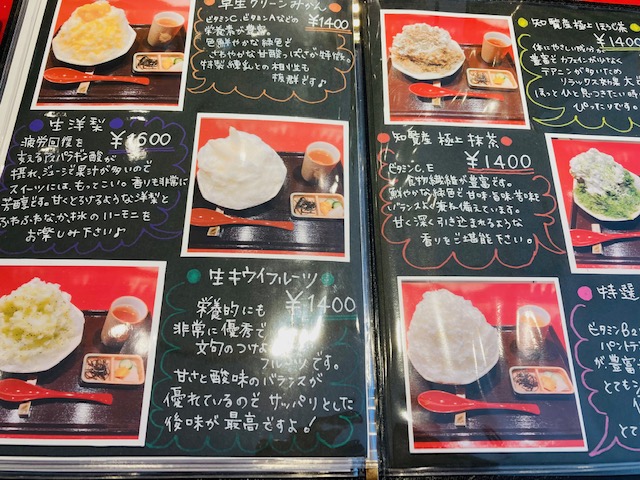 早生グリーンみかん
¥1400
ビタミンC、ビタミンAなどの
栄養素が豊富。
色鮮やかな緑色で
さわやかな甘酸っぱさが
特製練乳との相性も
抜群です♪
生洋梨
¥1600
疲労回復を
支えるアスパラギン酸が
摂れ、ジューシー果汁が多いので
スイーツには、もってこい。香りも非常に
芳醇です。甘くとろけるような洋梨と
ふわふわなかき氷のハーモニーを
お楽しみ下さい♪
生キウイフルーツ
¥1400
栄養的にも
非常に優秀で
文句のつけよ
フルーツです。
甘さと酸味のバランスが
優れているので サッパリとした
後味が最高ですよ!
知覧産極上ほうじ茶
¥1400
体にやさしい成分が
豊富で カフェインがほぼなく
テアニンが多いため
リラックス効果 大
ほっとひと息つきたい時に
ぴったりです。
知覧産 極上 抹茶
¥1400
ビタミンC、E
食物繊維が豊富です。
鮮やかな緑色と 甘味・旨味・苦味と
バランスよく兼ね備えています。
甘く深く引き込まれるような
香りをご堪能下さい。
特選
ビタミンB2
パントテン
が、豊富
とても
とて